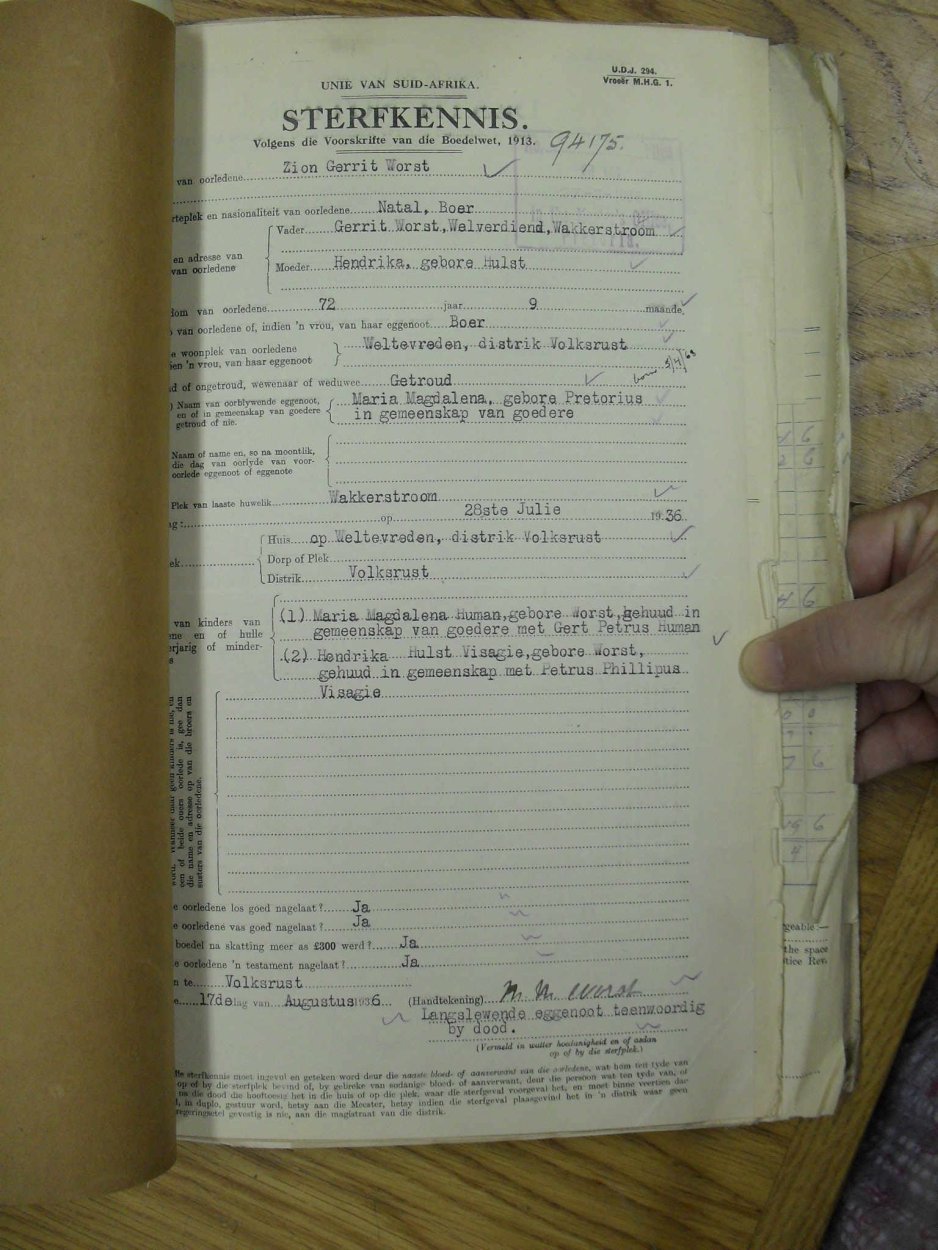 U.D.J. 294.
Vroeër M.H.G. 1.
UNIE VAN SUID-AFRIKA.
STERFKENNIS.
Volgens die Voorskrifte van die Boedelwet, 1913.
94175.
van oorledene Zion Gerrit Worst
rteplek en nasionaliteit van oorledene Natal, Boer
en adresse van van oorledene
Vader Gerrit Worst, Welverdiend, Wakkerstroom
Moeder Hendrika, gebore Hulst
dom van oorledene 72 jaar 9 maande.
van oorledene of, indien 'n vrou, van haar eggenoot Boer
e woonplek van oorledene
ien 'n vrou, van haar eggenoot
Weltevreden, distrik Volksrust
born 5/4/63
d of ongetroud, wewenaar of weduwee Getroud
) Naam van oorblywende eggenoot,
en of in gemeenskap van goedere
getroud of nie.
Maria Magdalena, gebore Pretorius
in gemeenskap van goedere
Naam of name en, so na moontlik,
die dag van oorlyde van voor-
oorlede eggenoot of eggenote
Plek van laaste huwelik Wakkerstroom
ag: op 28ste Julie 1936.
ek
Huis op Weltevreden, distrik Volksrust
Dorp of Plek
Distrik Volksrust
van kinders van
ne en of hulle
erjarig of minder-
s
(1) Maria Magdalena Human, gebore Worst, gehuud in
gemeenskap van goedere met Gert Petrus Human
(2) Hendrika Hulst Visagie, gebore Worst,
gehuud in gemeenskap met Petrus Phillipus
Visagie
een of beide ouers oorlede is, gee dan
die name en adresse op van die broers en
susters van die oorledene.
e oorledene los goed nagelaat? Ja
e oorledene vas goed nagelaat? Ja
boedel na skatting meer as £300 werd? Ja
e oorledene 'n testament nagelaat? Ja
n te Volksrust
e 17de dag van Augustus 1936
(Handtekening) M M Worst
Langslewende eggenoot teenwoordig
by dood.
(Vermeld in watter hoedanigheid en of sodan
op of by die sterfplek.)
sterfkennis moet ingevul en geteken word deur die naaste bloed- of aanverwant van die oorledene, wat hom ten tyde van
op of by die sterfplek bevind of, by gebreke van sodanige bloed- of aanverwant, deur die persoon wat ten tyde van, of
na die dood die hooftoesig het in die huis of op die plek, waar die sterfgeval voorgeval het, en moet binne veertien dae
in duplo, gestuur word, hetsy aan die Meester, hetsy indien die sterfgeval plaasgevind het in 'n distrik waar geen
regeringsetel gevestig is nie, aan die magistraat van die distrik.
geable:—
the space
tice Rev.